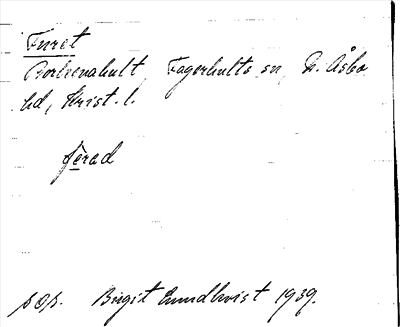 Furet
Porkenahult, Fagerhults sn, N. Åsbo
hd, Krist. l.
fèrad
sop. Birgit Lundkvist 1939.